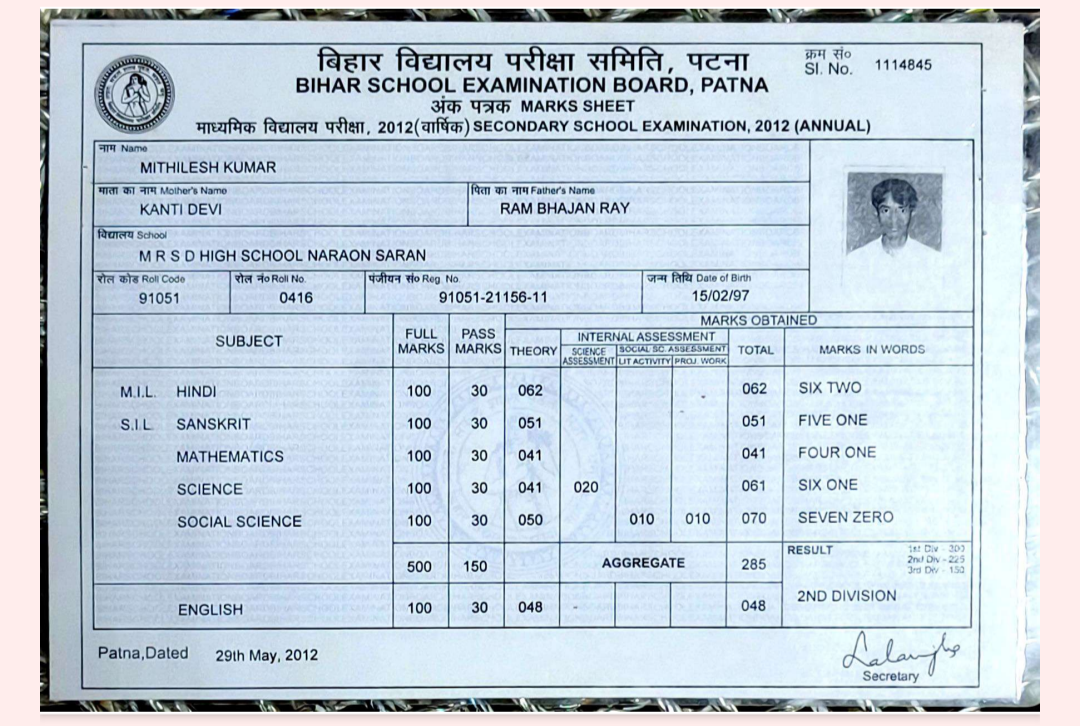 बिहार विद्यालय परीक्षा समिति, पटना
क्रम सं०
Sl. No. 1114845
BIHAR SCHOOL EXAMINATION BOARD, PATNA
अंक पत्रक MARKS SHEET
माध्यमिक विद्यालय परीक्षा, 2012(वार्षिक) SECONDARY SCHOOL EXAMINATION, 2012 (ANNUAL)
नाम Name
MITHILESH KUMAR
माता का नाम Mother's Name पिता का नाम Father's Name
KANTI DEVI RAM BHAJAN RAY
विद्यालय School
M R S D HIGH SCHOOL NARAON SARAN
रोल कोड Roll Code रोल नं० Roll No. पंजीयन सं० Reg. No. जन्म तिथि Date of Birth
91051 0416 91051-21156-11 15/02/97
SUBJECT FULL MARKS PASS MARKS MARKS OBTAINED
THEORY INTERNAL ASSESSMENT TOTAL MARKS IN WORDS
SCIENCE ASSESSMENT SOCIAL SC. ASSESSMENT
LIT ACTIVITY PROJ. WORK
M.I.L. HINDI 100 30 062 062 SIX TWO
S.I.L SANSKRIT 100 30 051 051 FIVE ONE
MATHEMATICS 100 30 041 041 FOUR ONE
SCIENCE 100 30 041 020 061 SIX ONE
SOCIAL SCIENCE 100 30 050 010 010 070 SEVEN ZERO
500 150 AGGREGATE 285 RESULT
1st Div - 300
2nd Div - 225
3rd Div - 150
2ND DIVISION
ENGLISH 100 30 048 - 048
Patna,Dated 29th May, 2012
Secretary